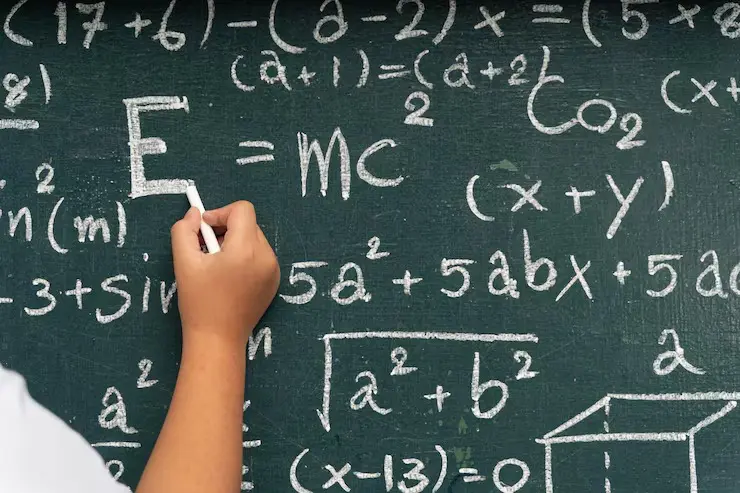 (17+6) - (a-2) x = (5x
8) (a+1) = (a+2 CO₂ (x+
E = mc²
n² n(m) (x+y)
3+sin 5a² + 5abx + 5a
n √a²+b² a
a²
(x-13) = 0